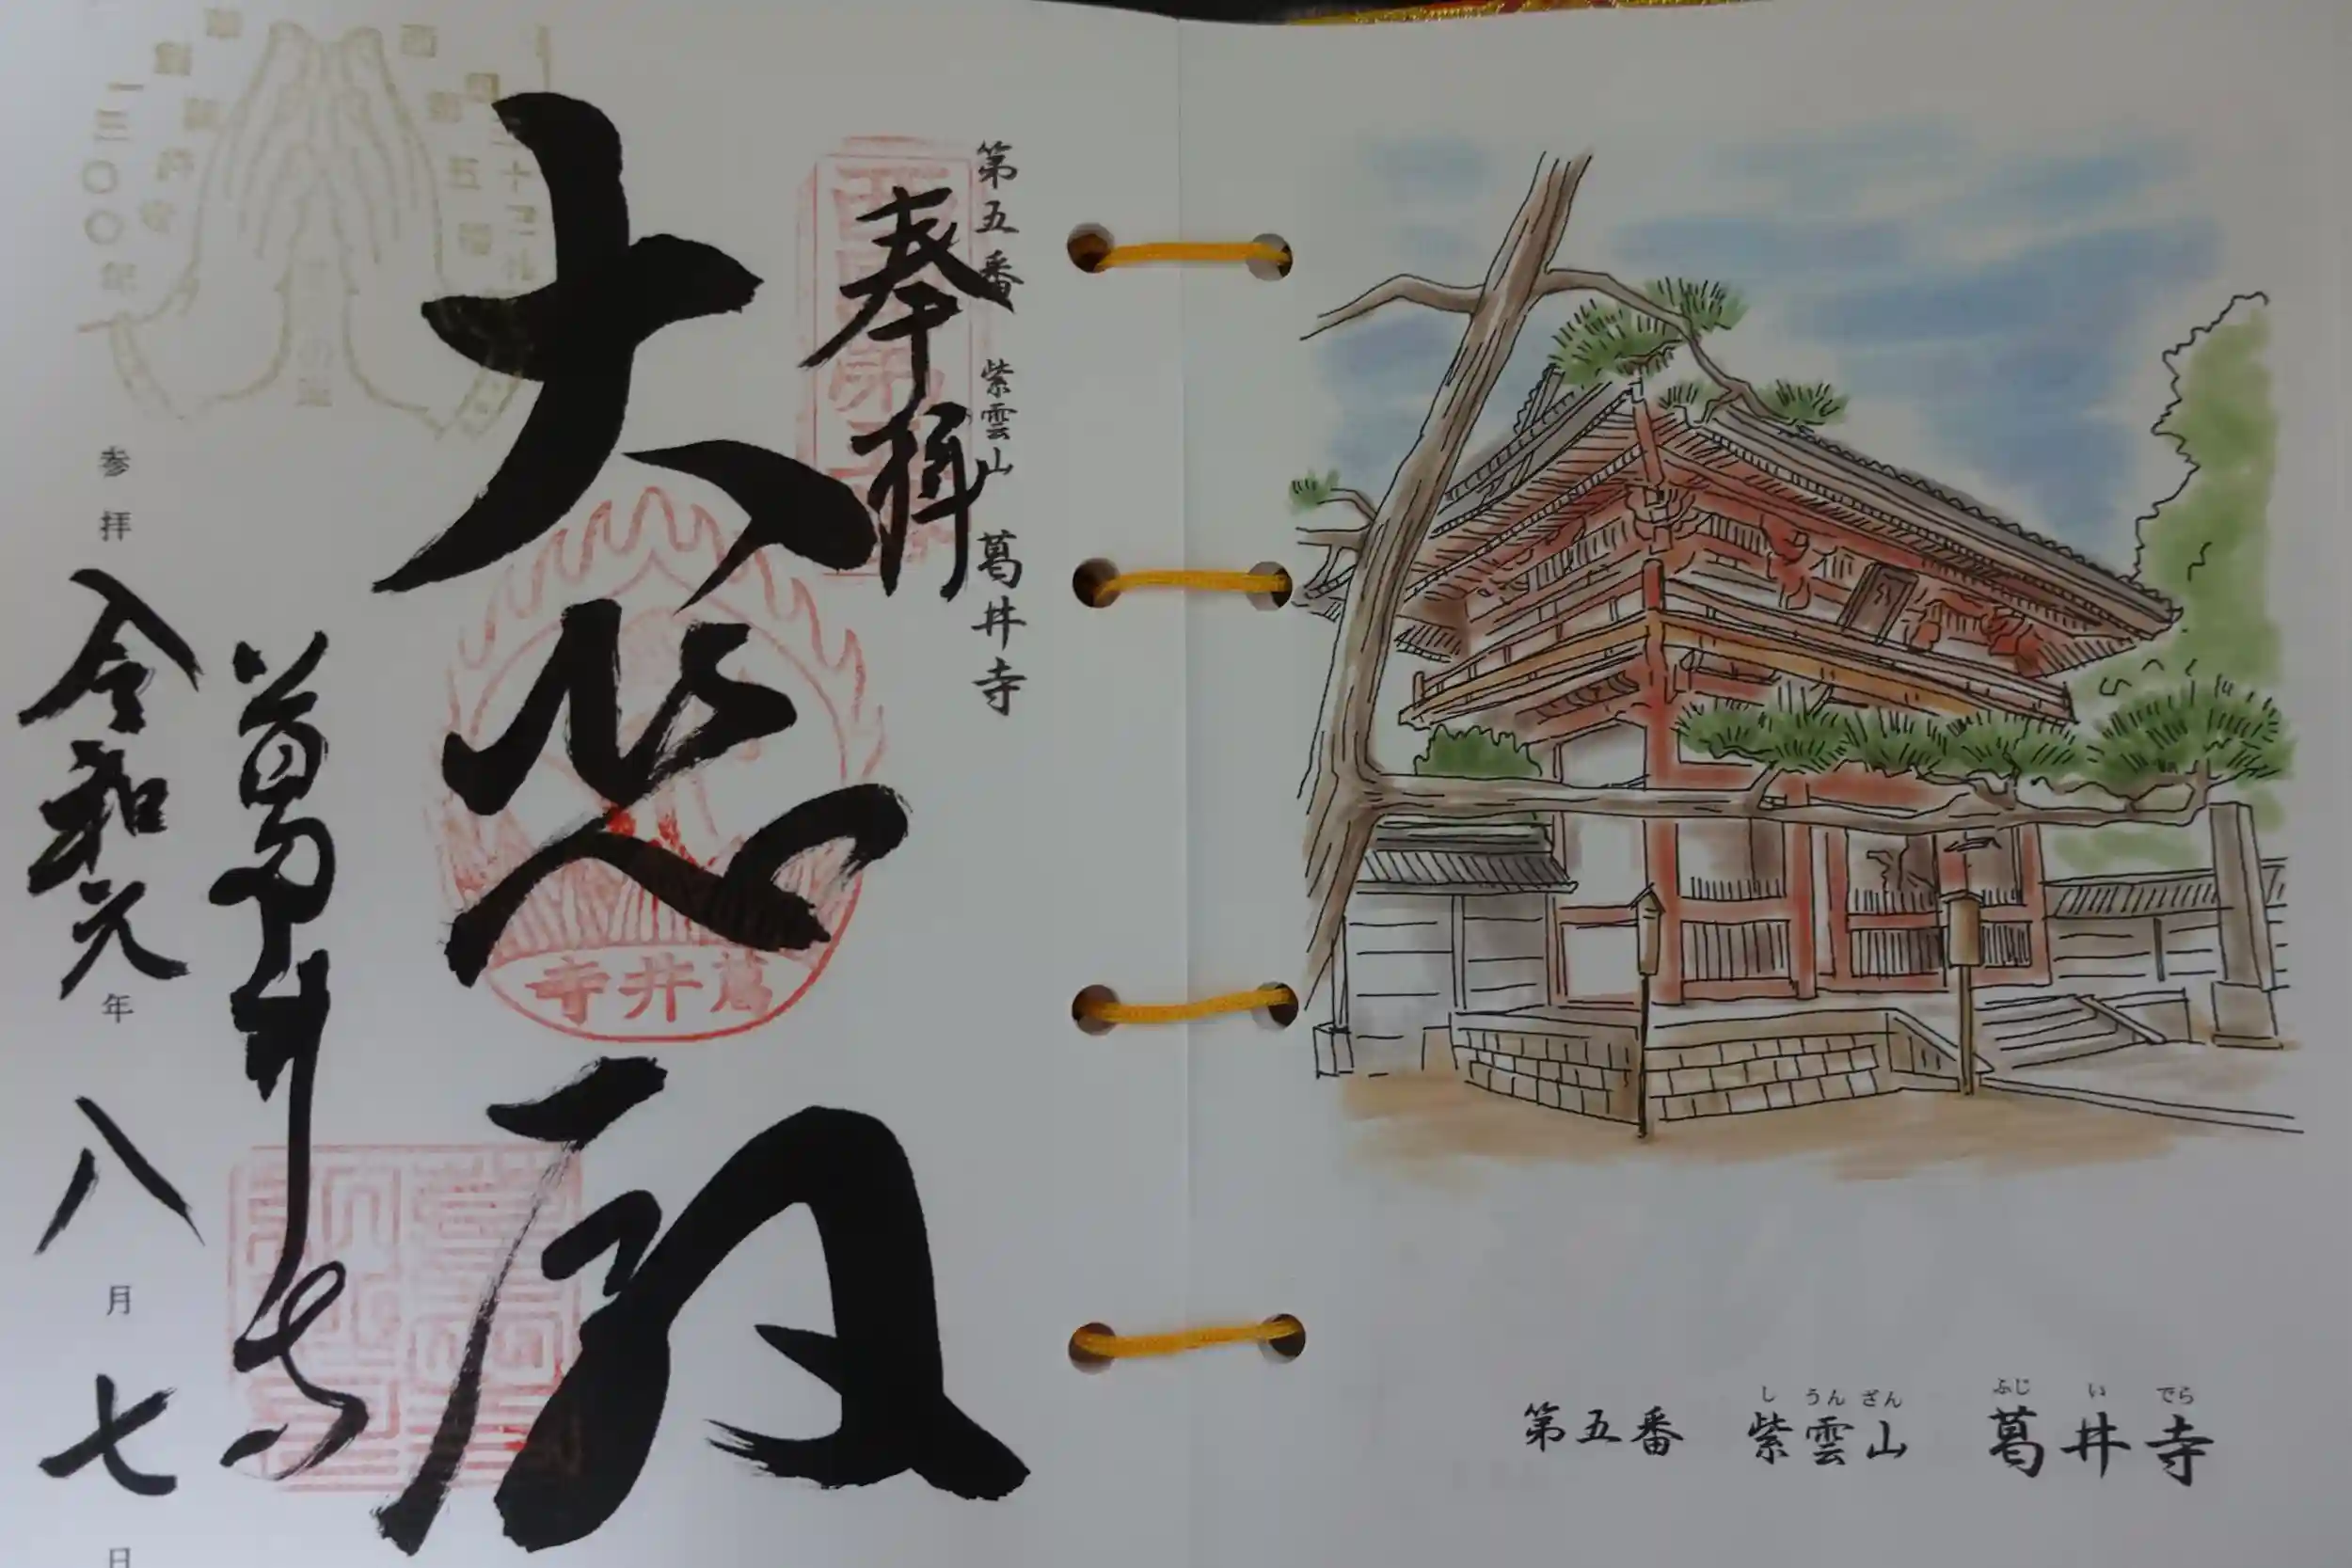 第五番 紫雲山 葛井寺
奉拝
大悲殿
葛井寺
参拝 令和元年 八月 七日
葛井寺
一三〇〇年
し うん ざん ふじ い でら
第五番 紫雲山 葛井寺